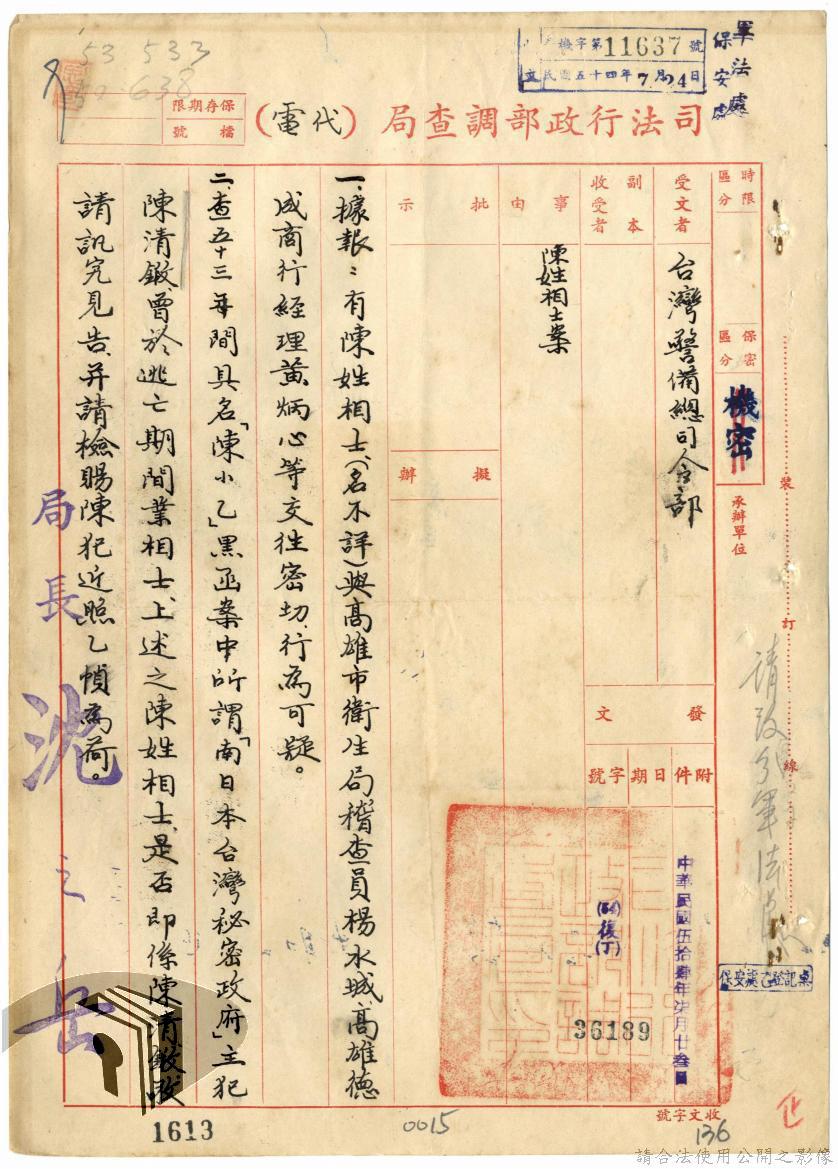 軍法處
保安處
機字第11637號
民國五十四年7月24日
53 533
638
保存期限
檔號
司法行政部調查局(代電)
時限
區分
保密
區分
機密
承辦單位
受文者
台灣警備總司令部
副本
收受者
事由
陳姓相士案
批示
擬辦
發文
附件
日期
字號
中華民國伍拾肆年柒月廿叁日
(54)復(丁)
36189
一、據報:有陳姓相士(名不詳)與高雄市衛生局稽查員楊水城、高雄德
成商行經理黃炳心等交往密切、行為可疑。
二、查五十三年間具名「陳小乙」黑函案中所謂「南日本台灣秘密政府」主犯
陳清鐓、曾於逃亡期間業相士、上述之陳姓相士、是否即係陳清鐓、敬
請訊究見告、并請檢賜陳犯近照乙幀為荷。
局長 沈之岳
裝
訂
線
保安處乙登記桌
收文字號
1613
0015
136
請合法使用公開之影像